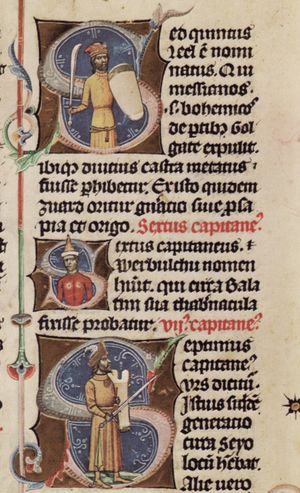 ed quintus
Leel ē nomi
natus. Qui
messianos.
⁊ bohemicos
de ꝑtibꝫ Gol
gate expulit.
ibiqꝫ diucius castra metatus
fuisse ꝑhibetur. Ex isto quidem
zuard oritur gnacio siue ꝓsa
pia et origo. Sextus capitane⁹
extus capitaneus.
Werbulchu nomen
hūit. qui circa Bala
tin sua thab̾nacula
fixisse probatur. vij⁹ capitane⁹.
eptimus
capitane⁹
vrs dictū.
Istius siq̄dē
generatio
circa seyo
locū hēbat.
Alie uero